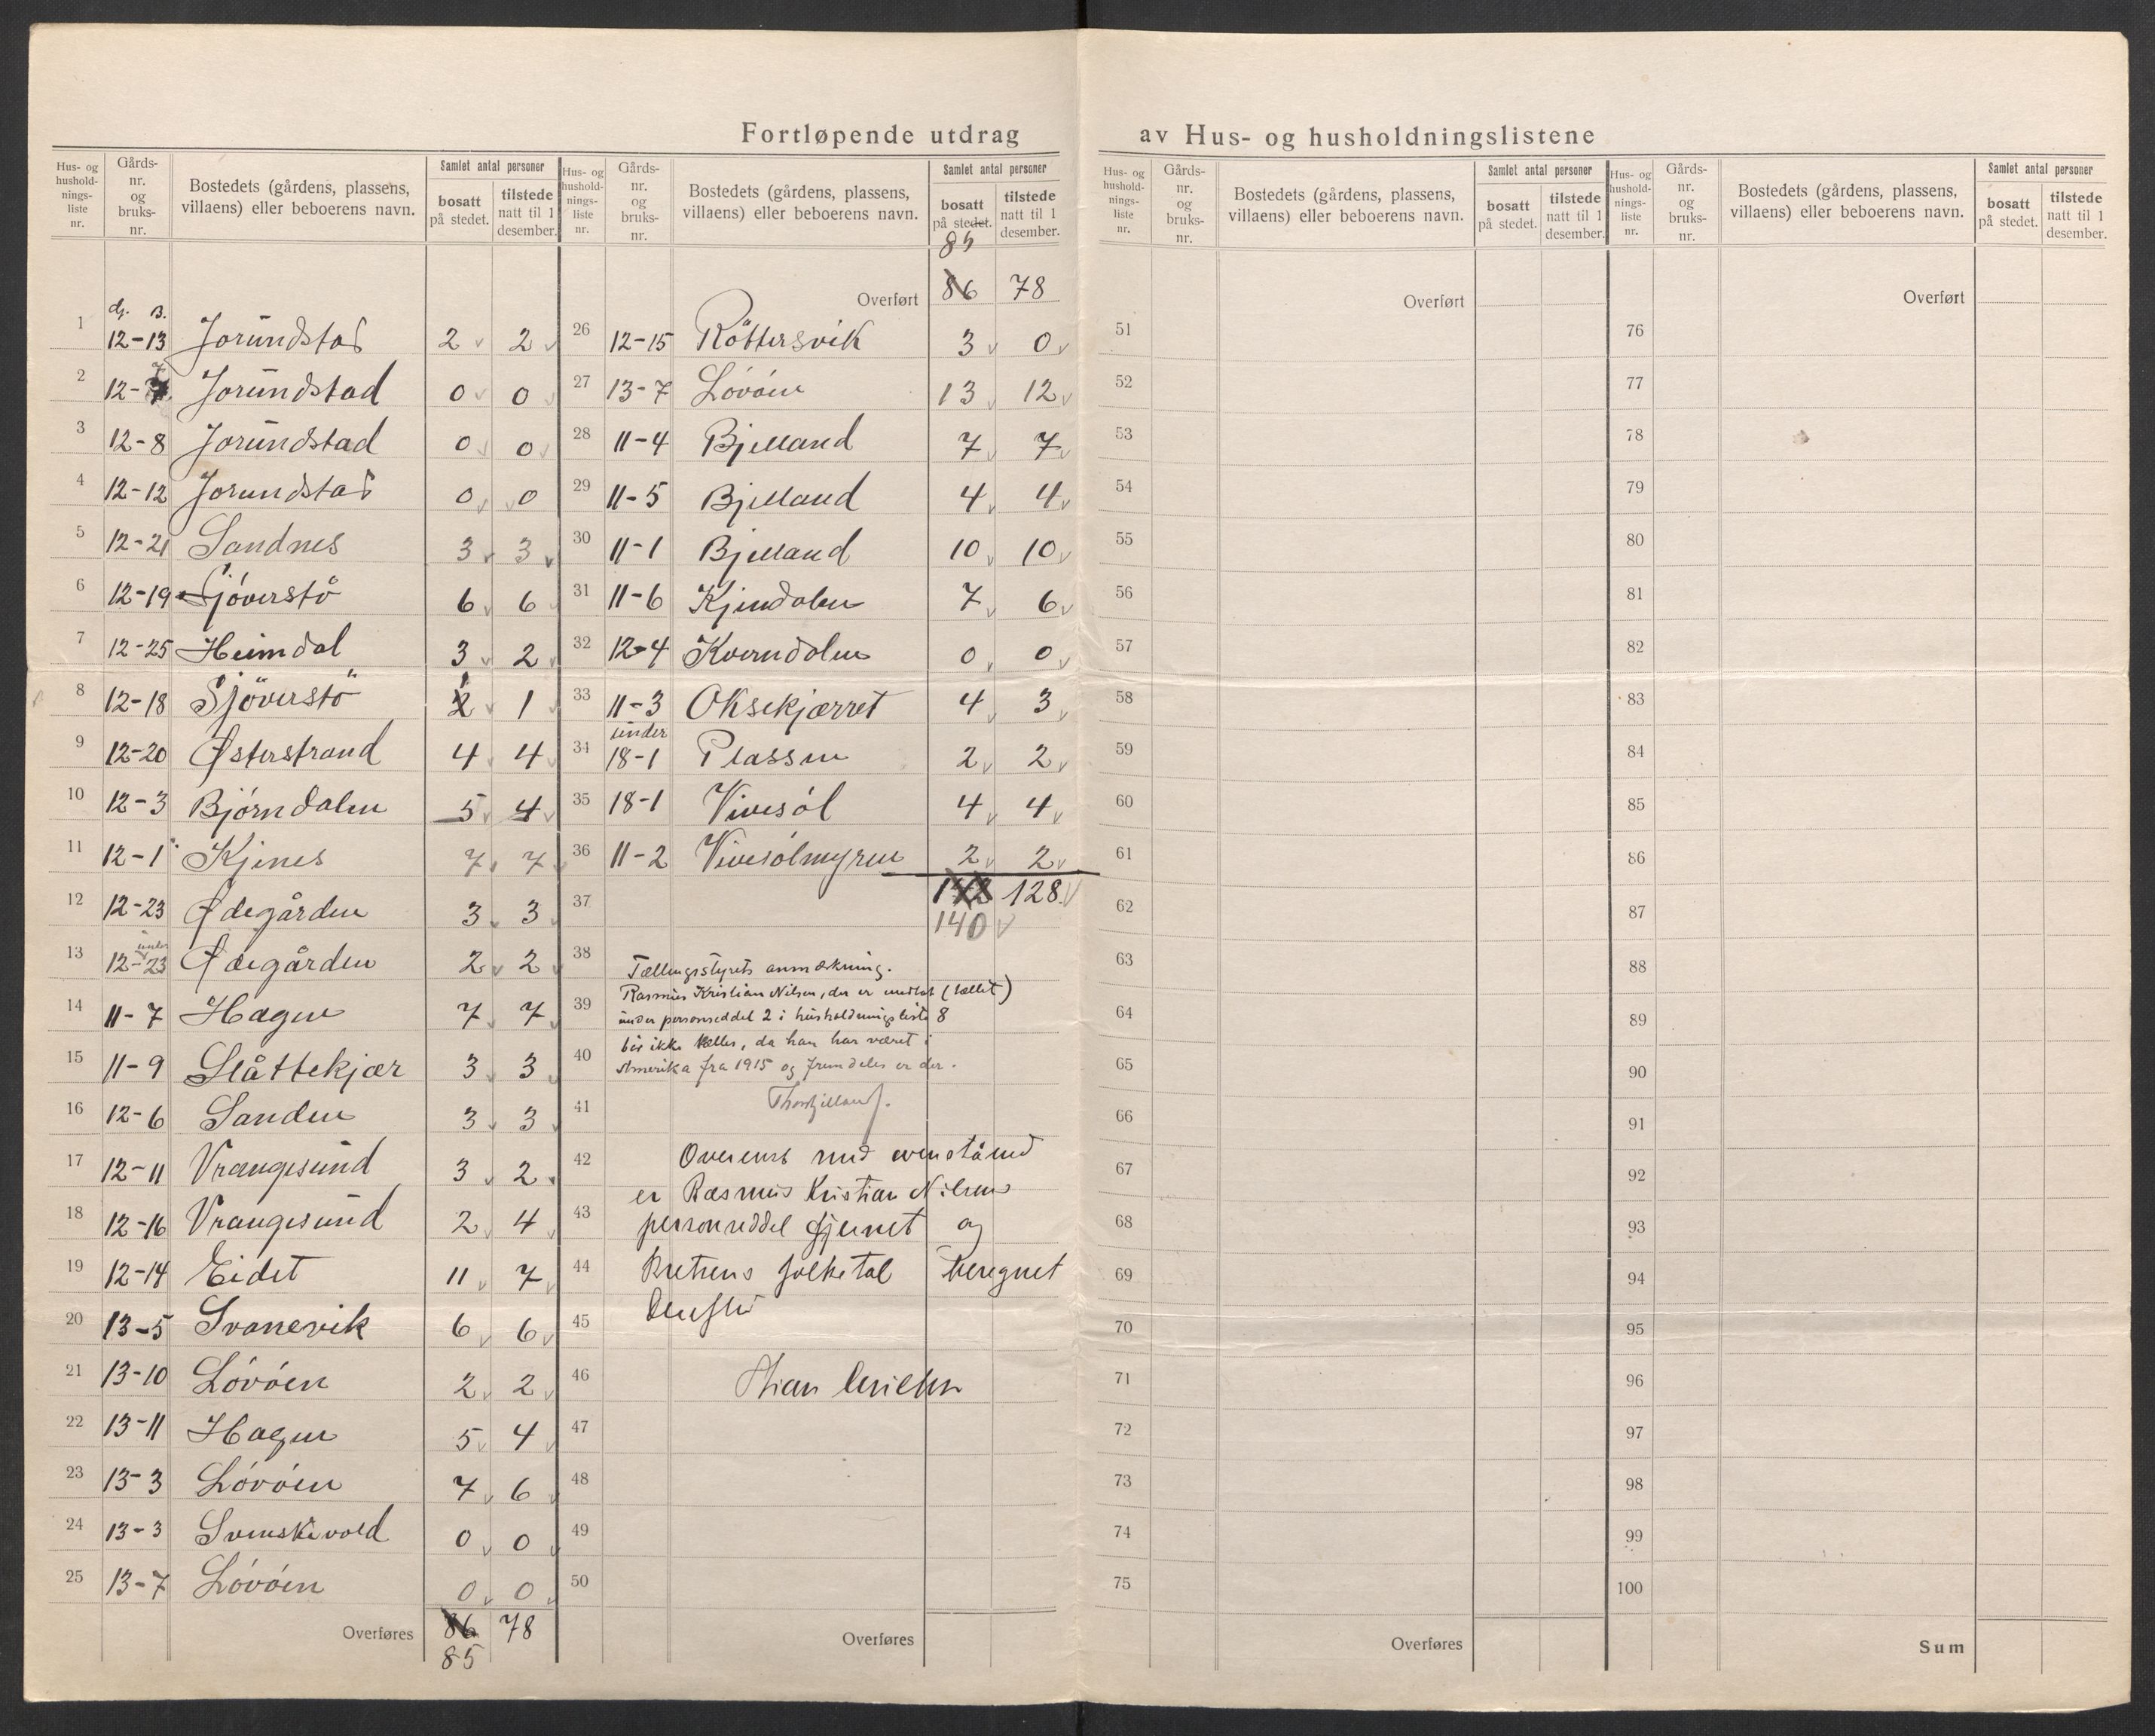 Fortløpende utdrag av Hus- og husholdningslistene
Hus- og husholdnings-liste nr. Gårds-nr. og bruks-nr. Bostedets (gårdens, plassens, villaens) eller beboerens navn. Samlet antal personer bosatt på stedet. tilstede natt til 1 desember.
G. B.
1 12-13 Jorundstad 2 2
2 12-7 Jorundstad 0 0
3 12-8 Jorundstad 0 0
4 12-12 Jorundstad 0 0
5 12-21 Sandnes 3 3
6 12-19 Sjöverstö 6 6
7 12-25 Heimdal 3 2
8 12-18 Sjöverstö 2 1 1
9 12-20 Østerstrand 4 4
10 12-3 Björndalen 5 4
11 12-1 Kjenes 7 7
12 12-23 Ødegården 3 3
13 under 12-23 Ødegården 2 2
14 11-7 Hagen 7 7
15 11-9 Slåttekjær 3 3
16 12-6 Sanden 3 3
17 12-11 Vrangesund 3 2
18 12-16 Vrangesund 2 4
19 12-14 Eidet 11 7
20 13-5 Svanevik 6 6
21 13-10 Lövöen 2 2
22 13-11 Hagen 5 4
23 13-3 Lövöen 7 6
24 13-3 Svenskevold 0 0
25 13-7 Lövöen 0 0
Overføres 86 78
85
Hus- og husholdnings-liste nr. Gårds-nr. og bruks-nr. Bostedets (gårdens, plassens, villaens) eller beboerens navn. Samlet antal personer bosatt på stedet. tilstede natt til 1 desember.
85
Overført 86 78
26 12-15 Röttersvik 3 0
27 13-7 Lövöen 13 12
28 11-4 Bjelland 7 7
29 11-5 Bjelland 4 4
30 11-1 Bjelland 10 10
31 11-6 Kjendalen 7 6
32 12-4 Kverndalen 0 0
33 11-3 Oksekjærret 4 3
34 under 18-1 Plassen 2 2
35 18-1 Vivesöl 4 4
36 11-2 Vivesölmyren 2 2
37 128
140
38 Tællingsstyrets anmærkning.
39 Rasmus Kristian Nilsen, der er (tællet)
under personseddel 2 i husholdningsliste 8
bör ikke tælles, da han har været i
40 Amerika fra 1915 og fremdeles er der.
41
42 Overens med ovenstånd
er Rasmus Kristian Nilsens
43 personseddel fjernet og
44 Kretsens folketal beregnet
45 derefter
46
47
48
49
50
Overføres
Hus- og husholdnings-liste nr. Gårds-nr. og bruks-nr. Bostedets (gårdens, plassens, villaens) eller beboerens navn. Samlet antal personer bosatt på stedet. tilstede natt til 1 desember.
Overført
51
52
53
54
55
56
57
58
59
60
61
62
63
64
65
66
67
68
69
70
71
72
73
74
75
Overføres
Hus- og husholdnings-liste nr. Gårds-nr. og bruks-nr. Bostedets (gårdens, plassens, villaens) eller beboerens navn. Samlet antal personer bosatt på stedet. tilstede natt til 1 desember.
Overført
76
77
78
79
80
81
82
83
84
85
86
87
88
89
90
91
92
93
94
95
96
97
98
99
100
Sum